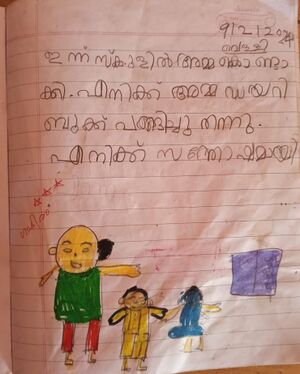 9/2/2024
വെള്ളി
ഇന്ന് സ്കൂളിൽ അമ്മ കൊണ്ടാ
ക്കി. എനിക്ക് അമ്മ ഡയറി
ബുക്ക് പങ്ങിച്ചു തന്നു.
എനിക്ക് സന്തോഷമായി